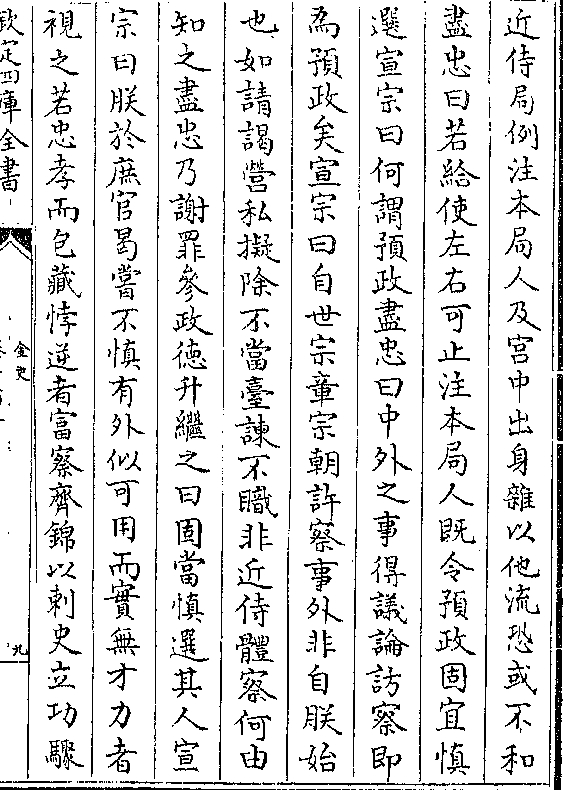 近侍局例注本局人及宫中出身雜以他流恐或不和
盡忠曰若給使左右可止注本局人既令預政固宜慎
選宣宗曰何謂預政盡忠曰中外之事得議論訪察即
為預政矣宣宗曰自世宗章宗朝許察事外非自朕始
也如請謁營私擬除不當臺諫不職非近侍體察何由
知之盡忠乃謝罪參政德升繼之曰固當慎選其人宣
宗曰朕於庶官曷嘗不慎有外似可用而實無才力者
視之若忠孝而包藏悖逆者富察齊錦以刺史立功驟
欽定四庫全書
金史
九